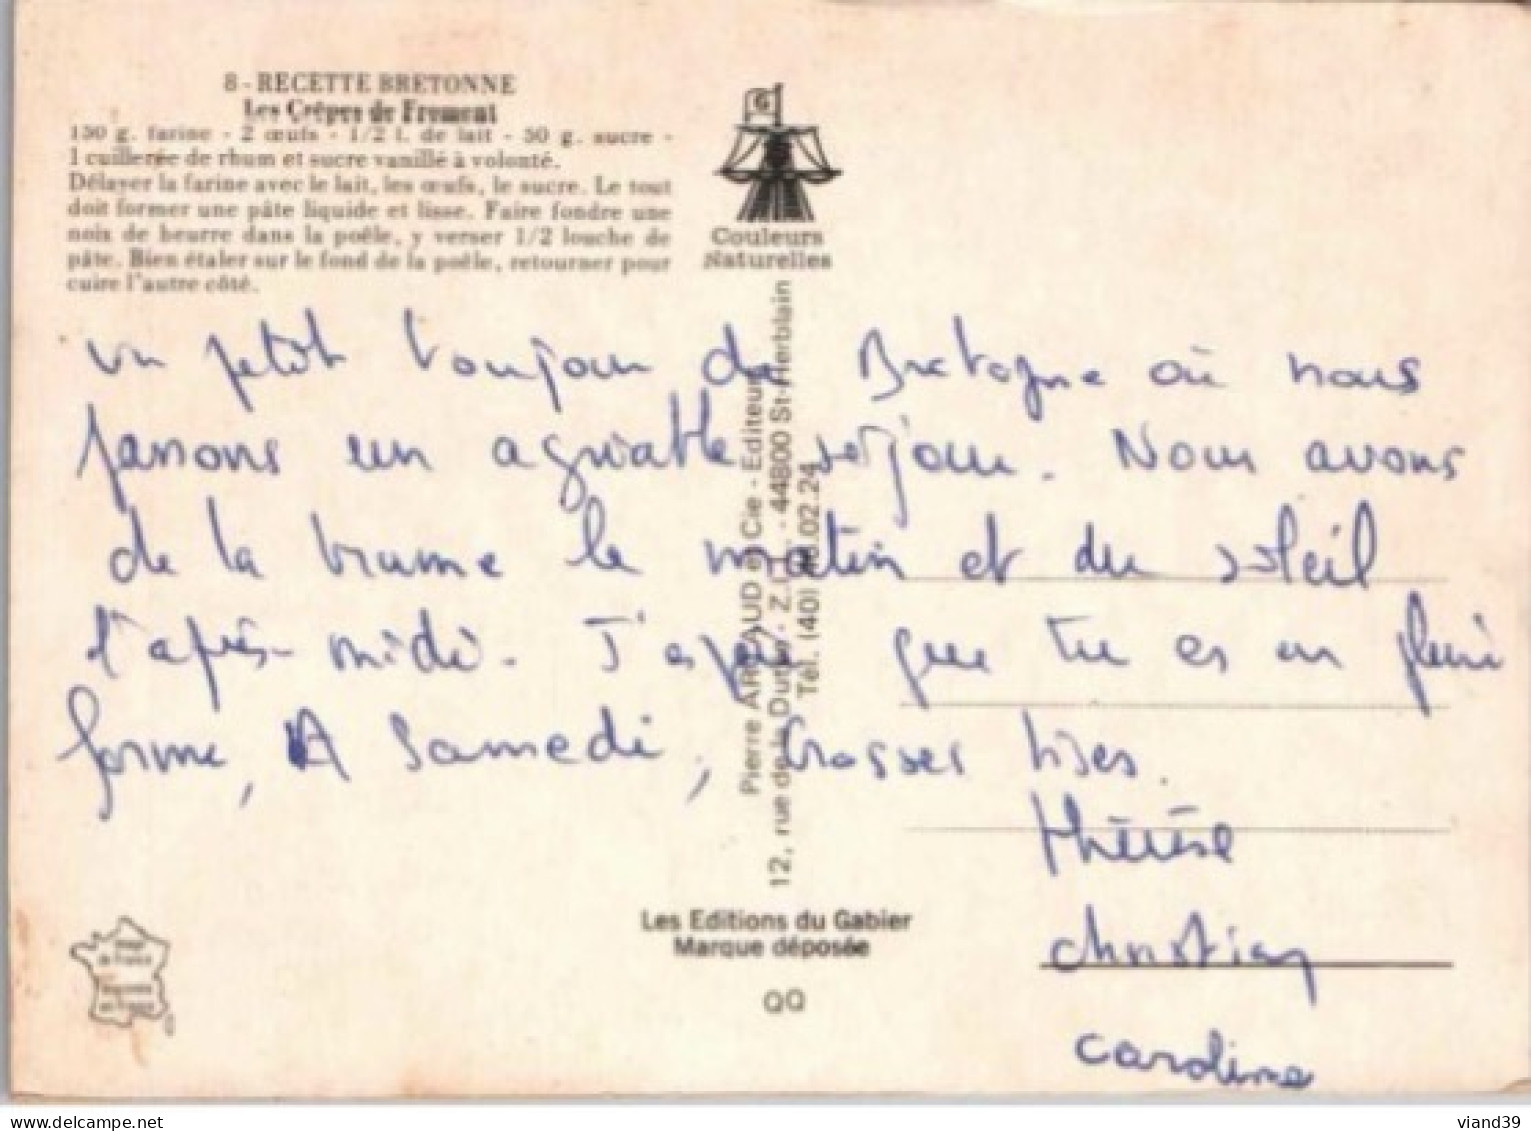 8 - RECETTE BRETONNE
Les Crêpes de Froment
150 g. farine - 2 œufs - 1/2 l. de lait - 50 g. sucre -
1 cuillerée de rhum et sucre vanillé à volonté.
Délayer la farine avec le lait, les œufs, le sucre. Le tout
doit former une pâte liquide et lisse. Faire fondre une
noix de beurre dans la poêle, y verser 1/2 louche de
pâte. Bien étaler sur le fond de la poêle, retourner pour
cuire l'autre côté.
G
Couleurs
Naturelles
un petit bonjour de Bretagne où nous
passons un agréable séjour. Nous avons
de la brume le matin et du soleil
l'après-midi. J'espère que tu es en pleine
forme, A Samedi, Grosses bises.
Thérèse
Christian
Caroline
Pierre ARTAUD et Cie - Editeur
12, rue de la Dutée - Z.I.L. - 44800 St-Herblain
Tél. (40) 02.24
Les Editions du Gabier
Marque déposée
QQ
de France
viand39